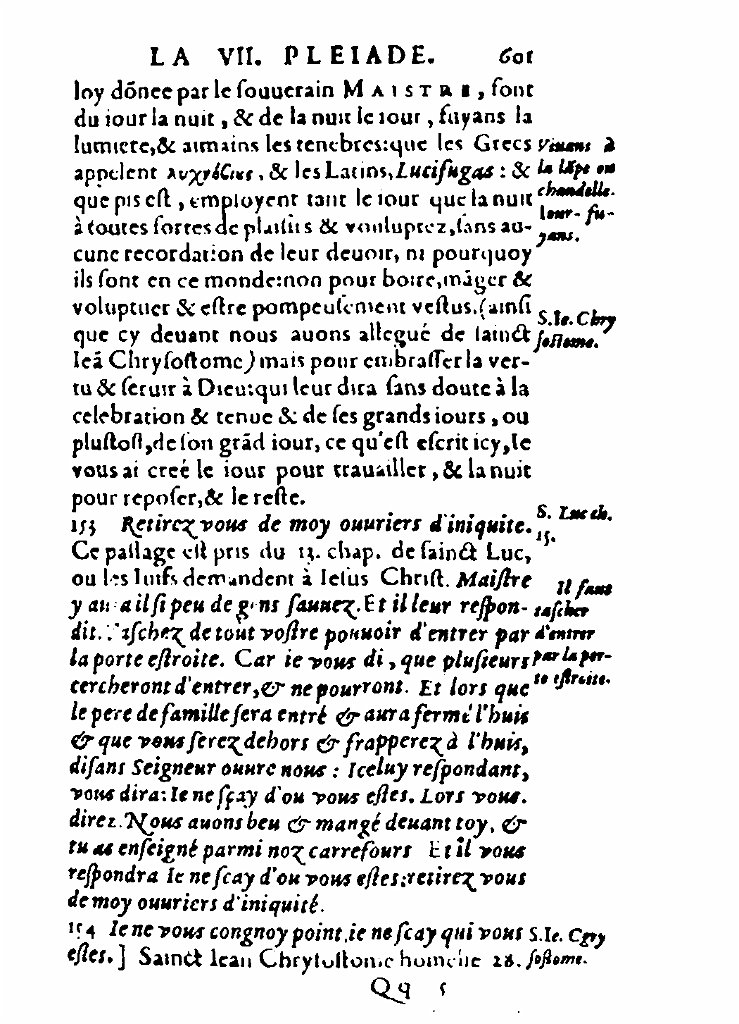 LA VII. PLEIADE. 601
loy dõnee par le ſouuerain MAISTRE, font
du iour la nuit, & de la nuit le iour, fuyans la
lumiere, & aimans les tenebres: que les Grecs
appelent & les Latins, Lucifugas: &
que pis eſt, employent tant le iour que la nuit
à toutes ſortes de plaiſirs & vouluptez, ſans au-
cune recordation de leur deuoir, ni pourquoy
ils ſont en ce monde: non pour boire, mãger &
voluptuer & eſtre pompeuſement veſtus. (ainſi
que cy deuant nous auons allegué de ſainct
Ieã Chryſoſtome) mais pour embraſſer la ver-
tu & ſeruir à Dieu: qui leur dira ſans doute à la
celebration & tenue & de ſes grands iours, ou
pluſtoſt, de ſon grãd iour, ce qu'eſt eſcrit icy, Ie
vous ai creé le iour pour trauailler, & la nuit
pour repoſer, & le reſte.
Viuans à
la lãpe ou
chandelle.
leur-fu-
yans.
S. Ie. Chry
ſoſtome.
153 Retirez vous de moy ouuriers d'iniquite.
Ce paſſage eſt pris du 13. chap. de ſainct Luc,
ou les Iuifs demandent à Ieſus Chriſt. Maiſtre
y aura il ſi peu de gens ſauuez. Et il leur reſpon-
dit. Taſchez de tout voſtre pouuoir d'entrer par
la porte eſtroite. Car ie vous di, que pluſieurs
cercheront d'entrer, & ne pourront. Et lors que
le pere de famille ſera entré & aura fermé l'huis
& que vous ſerez dehors & frapperez à l'huis,
diſans Seigneur ouure nous: Iceluy reſpondant,
vous dira: Ie ne ſçay d'ou vous eſtes. Lors vous.
direz. Nous auons beu & mangé deuant toy, &
tu as enſeigné parmi noz carrefours Et il vous
reſpondra Ie ne ſcay d'ou vous eſtes: retirez vous
de moy ouuriers d'iniquité.
S. Luc ch.
15.
Il faut
taſcher
d'entrer
par la por-
te eſtroite.
154 Ie ne vous congnoy point, ie ne ſcay qui vous
eſtes.] Sainct Iean Chryſoſtome homelie 28.
S. Ie. Chry
ſoſtome.
Qq 5